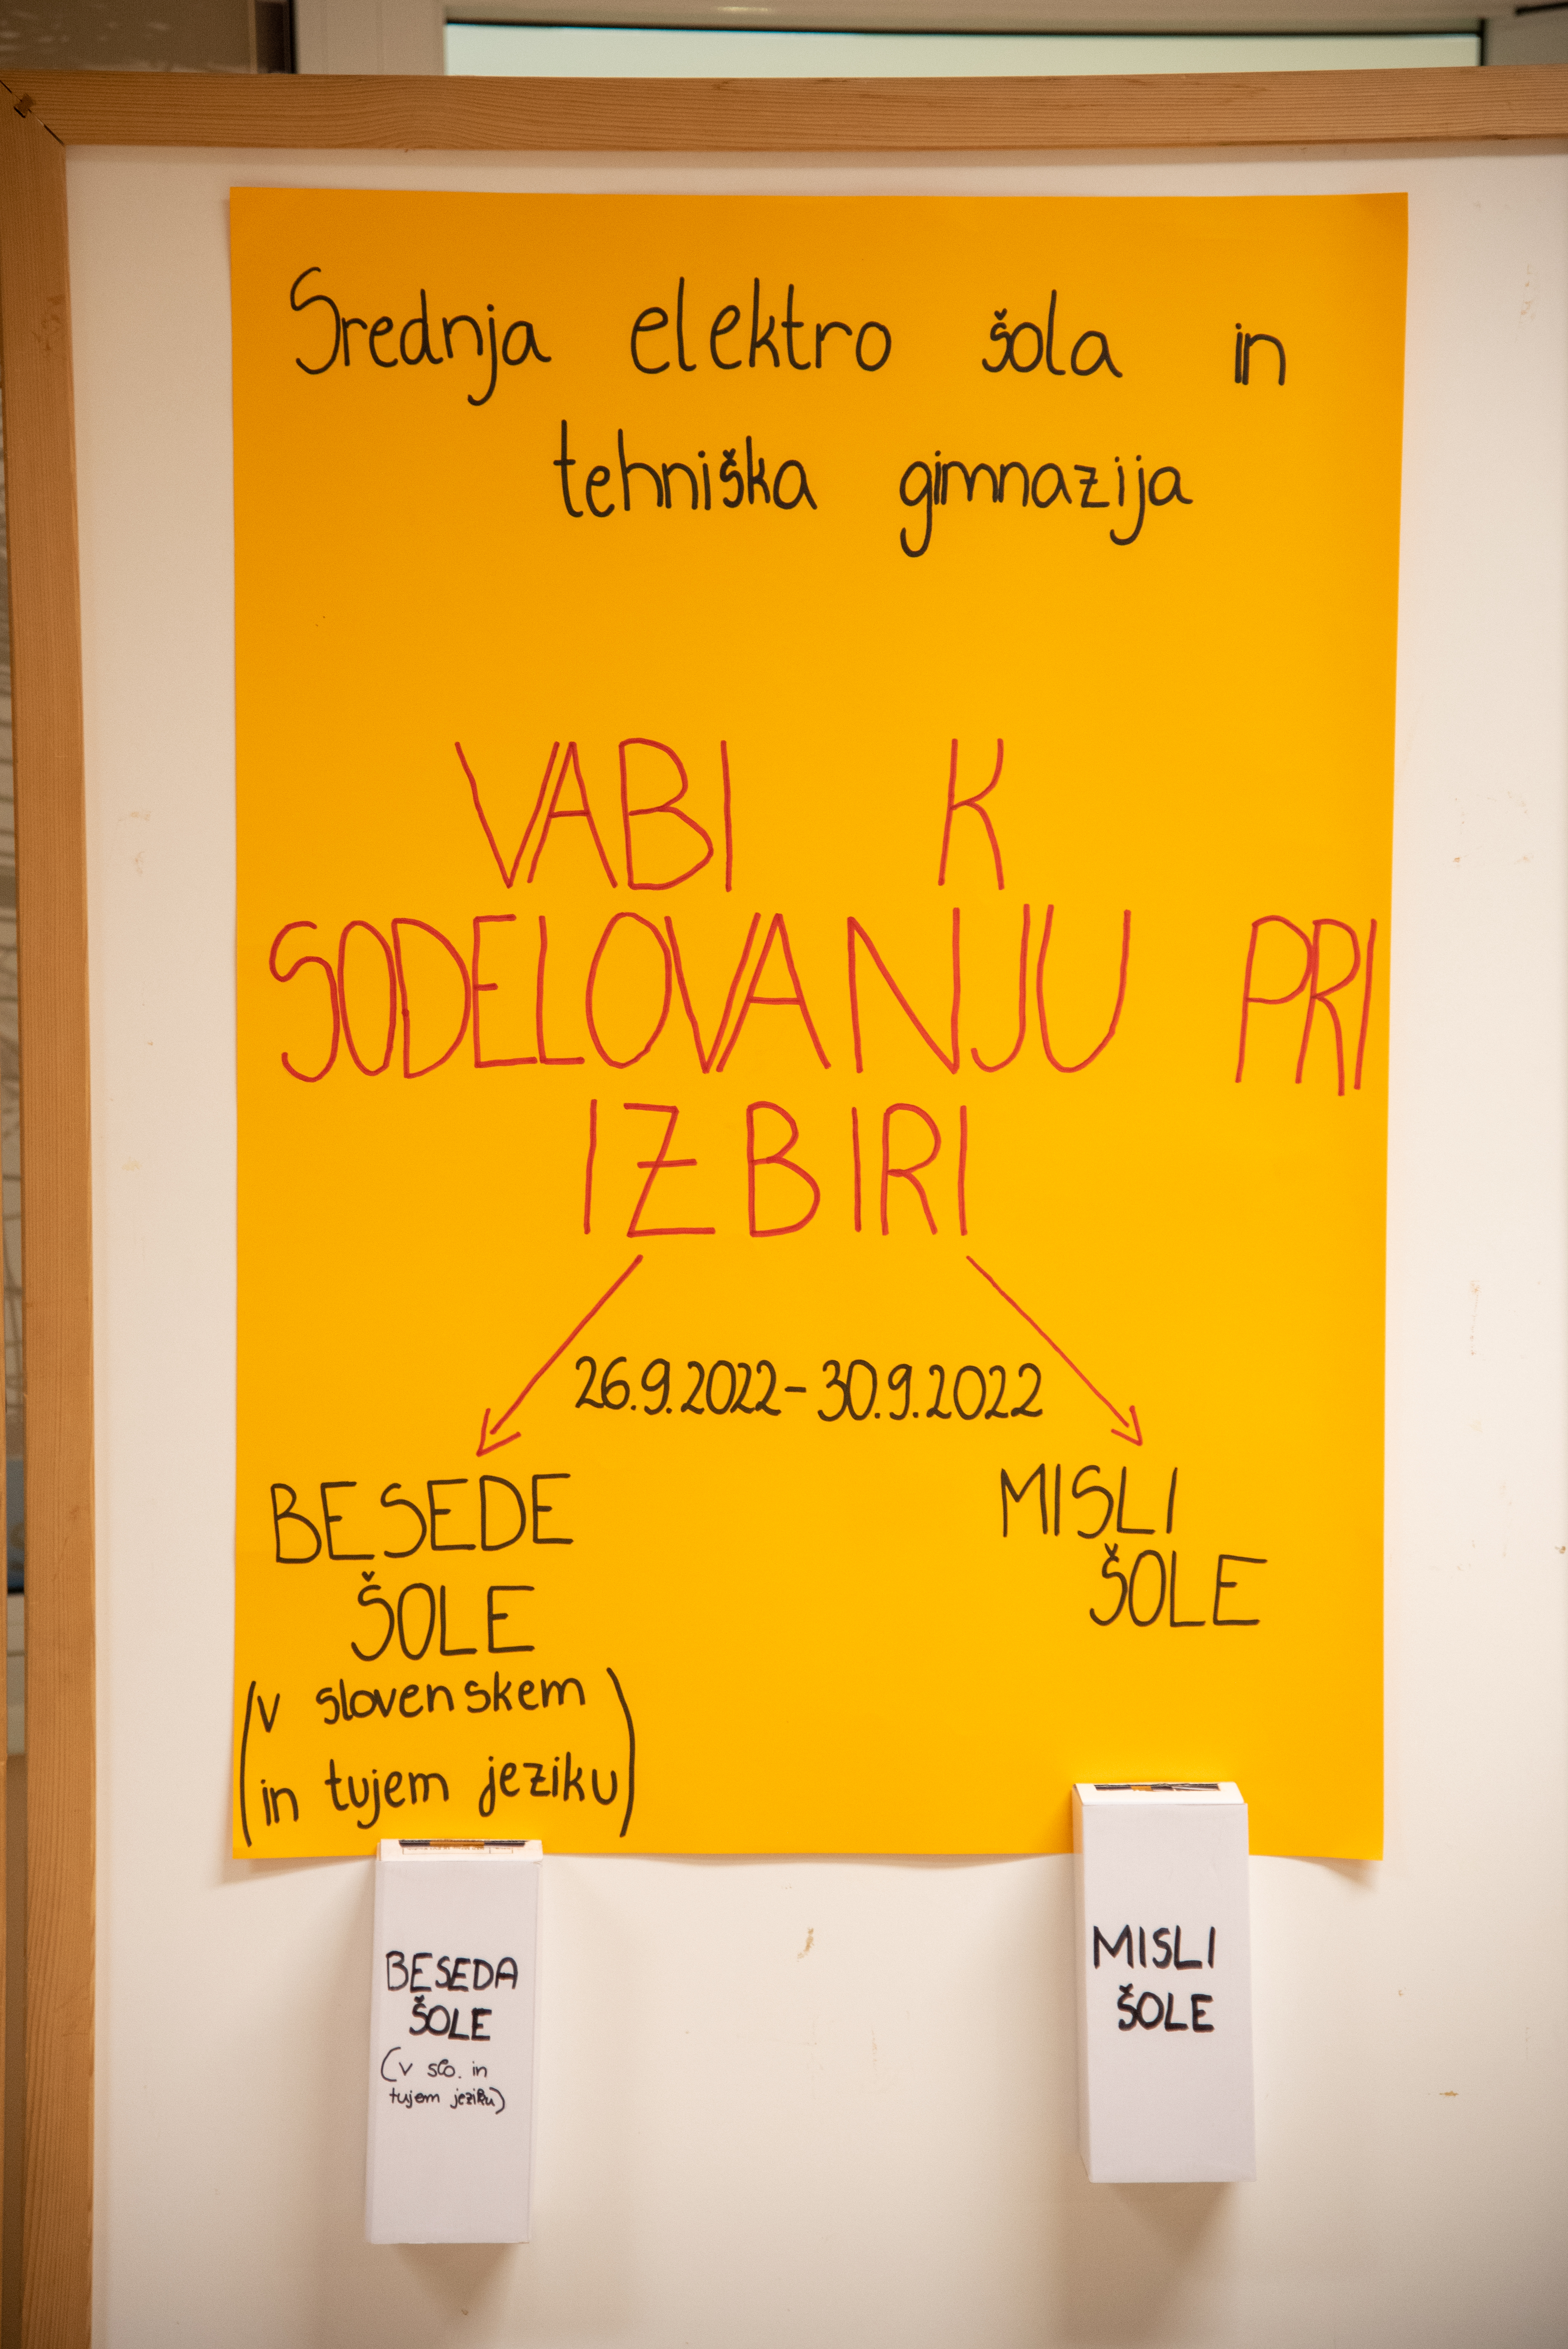 Srednja elektro šola in
tehniška gimnazija
VABI K
SODELOVANJU PRI
IZBIRI
26.9.2022-30.9.2022
BESEDE
ŠOLE
(v slovenskem
in tujem jeziku)
MISLI
ŠOLE
BESEDA
ŠOLE
(v slo. in
tujem jeziku)
MISLI
ŠOLE